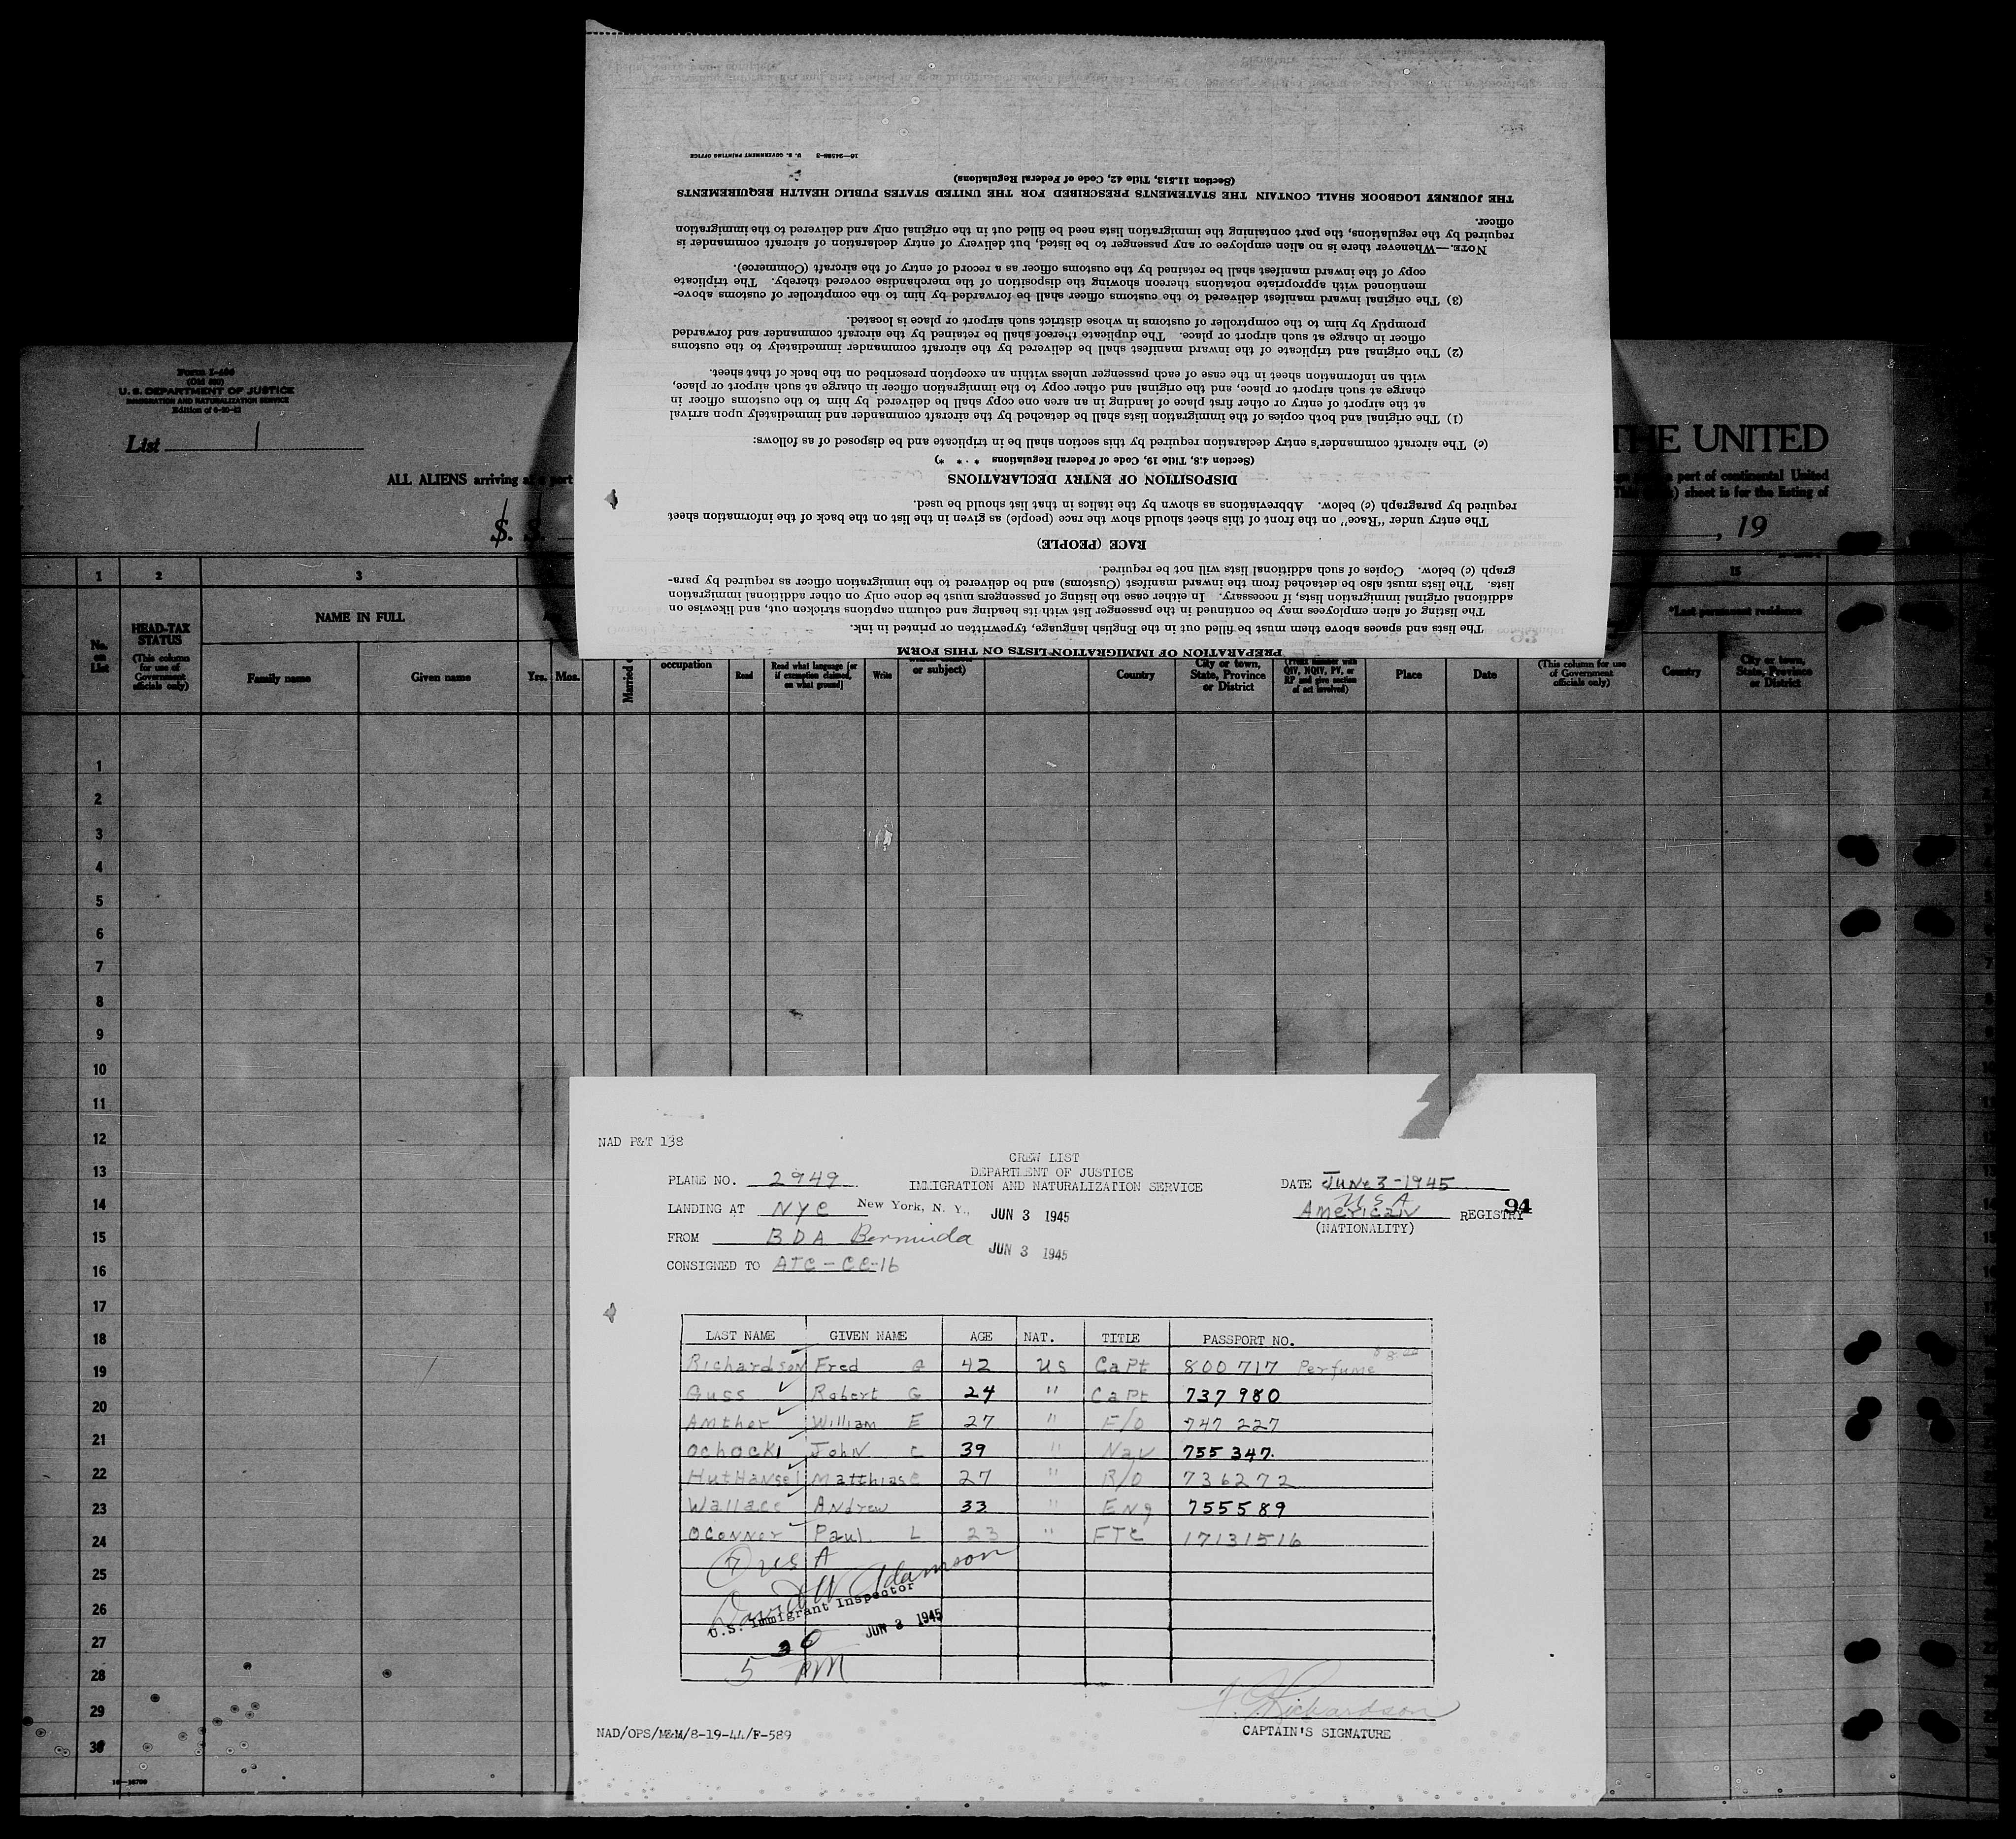 PREPARATION OF IMMIGRATION LISTS ON THIS FORM
The lists and spaces above them must be filled out in the English language, typewritten or printed in ink.
The listing of alien employees may be continued in the passenger list with its heading and column captions stricken out, and likewise on
additional original immigration lists, if necessary. In either case the listing of passengers must be done only on other additional immigration
lists. The lists must also be detached from the inward manifest (Customs) and be delivered to the immigration officer as required by para-
graph (c) below. Copies of such additional lists will not be required.
RACE (PEOPLE)
The entry under "Race" on the front of this sheet should show the race (people) as given in the list on the back of the information sheet
required by paragraph (c) below. Abbreviations as shown by the italics in that list should be used.
DISPOSITION OF ENTRY DECLARATIONS
(Section 4.8, Title 19, Code of Federal Regulations * * *)
(c) The aircraft commander's entry declaration required by this section shall be in triplicate and be disposed of as follows:
(1) The original and both copies of the immigration lists shall be detached by the aircraft commander and immediately upon arrival
at the airport of entry or other first place of landing in an area one copy shall be delivered by him to the customs officer in
charge at such airport or place, and the original and other copy to the immigration officer in charge at such airport or place,
with an information sheet in the case of each passenger unless within an exception prescribed on the back of that sheet.
(2) The original and triplicate of the inward manifest shall be delivered by the aircraft commander immediately to the customs
officer in charge at such airport or place. The duplicate thereof shall be retained by the aircraft commander and forwarded
promptly by him to the comptroller of customs in whose district such airport or place is located.
(3) The original inward manifest delivered to the customs officer shall be forwarded by him to the comptroller of customs above-
mentioned with appropriate notations thereon showing the disposition of the merchandise covered thereby. The triplicate
copy of the inward manifest shall be retained by the customs officer as a record of entry of the aircraft (Commerce).
NOTE.—Whenever there is no alien employee or any passenger to be listed, but delivery of entry declaration of aircraft commander is
required by the regulations, the part containing the immigration lists need be filled out in the original only and delivered to the immigration
officer.
THE JOURNEY LOGBOOK SHALL CONTAIN THE STATEMENTS PRESCRIBED FOR THE UNITED STATES PUBLIC HEALTH REQUIREMENTS
(Section 11.513, Title 42, Code of Federal Regulations)
16—24588-3 U. S. GOVERNMENT PRINTING OFFICE
U. S. DEPARTMENT OF JUSTICE
IMMIGRATION AND NATURALIZATION SERVICE
List 1
THE UNITED
ALL ALIENS arriving at a port
a port of continental United
sheet is for the listing of
S. S.
, 19
1 2 3 13
No. on List
HEAD-TAX STATUS
(This column for use of Government officials only)
NAME IN FULL
Family name Given name Yrs. Mos. Married occupation Read Read what language [or if exemption claimed, on what ground] Write or subject) Country City or town, State, Province or District
(Print number with QIV, NQIV, PV, or RP and give section of act involved)
Place Date (This column for use of Government officials only)
*Last permanent residence
Country City or town, State, Province or District
1
2
3
4
5
6
7
8
9
10
11
12
13
14
15
16
17
18
19
20
21
22
23
24
25
26
27
28
29
30
NAD P&T 138
CREW LIST
DEPARTMENT OF JUSTICE
IMMIGRATION AND NATURALIZATION SERVICE
PLANE NO. 2949
DATE June 3-1945
LANDING AT NYC New York, N. Y., JUN 3 1945
USA
American REGISTRY 94
(NATIONALITY)
FROM BDA Bermuda JUN 3 1945
CONSIGNED TO ATC-CE-16
LAST NAME GIVEN NAME AGE NAT. TITLE PASSPORT NO.
Richardson Fred G 42 US Capt 800 717 Perfume
Guss Robert G 24 " Capt 737 980
Amther William E 27 " F/O 747 227
Ochocki John C 39 " Nav 755 347.
HutHansel Matthias C 27 " R/O 736272
Wallace Andrew 33 " Eng 755589
OConnor Paul L 23 " FTC 17131516
7 US A
David W Adamson
U.S. Immigrant Inspector
JUN 3 1945
5 30 PM
F G Richardson
CAPTAIN'S SIGNATURE
NAD/OPS/M&M/8-19-44/F-589